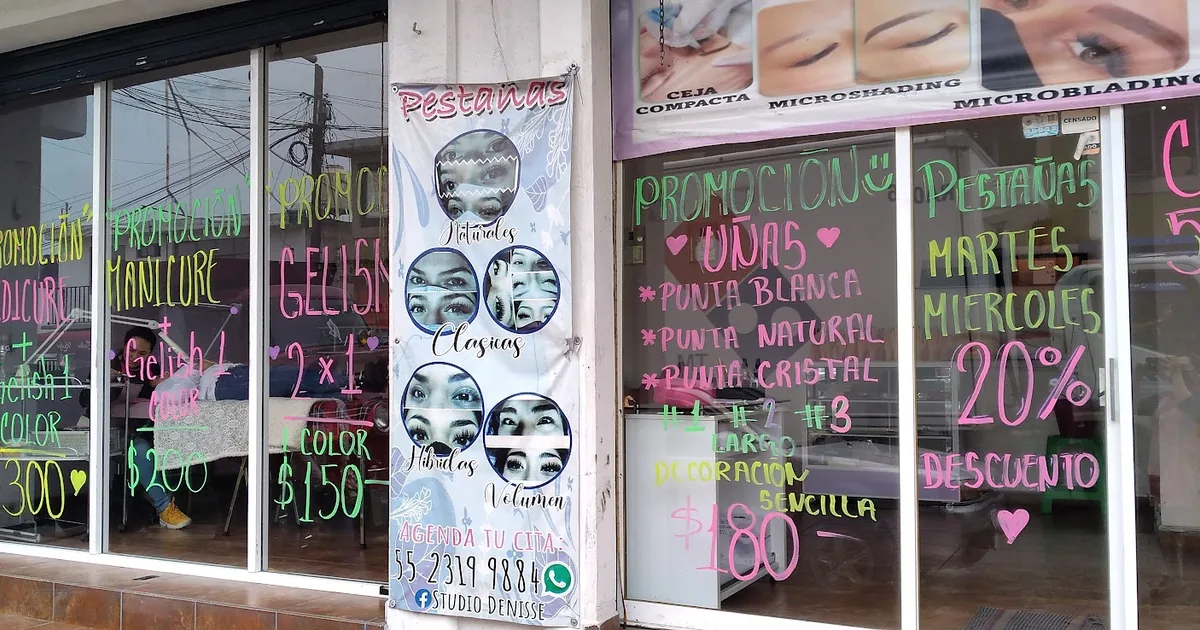 PROMOCIÓN
PEDICURE
+
Gelish 1
COLOR
300
"PROMOCIÓN"
MANICURE
+
Gelish 1
COLOR
$200
"PROMO
GELISH
2x1
1 COLOR
$150-
Pestañas
Naturales
Clasicas
Hibridas
Volumen
AGENDA TU CITA:
55 2319 9884
STUDIO DENISSE
CEJA
COMPACTA
MICROSHADING
MICROBLADING
PROMOCIÓN
UÑAS
*PUNTA BLANCA
*PUNTA NATURAL
*PUNTA CRISTAL
#1 #2 #3
LARGO
DECORACIÓN
SENCILLA
$180-
CENSADO
PESTAÑAS
MARTES
MIERCOLES
20%
DESCUENTO